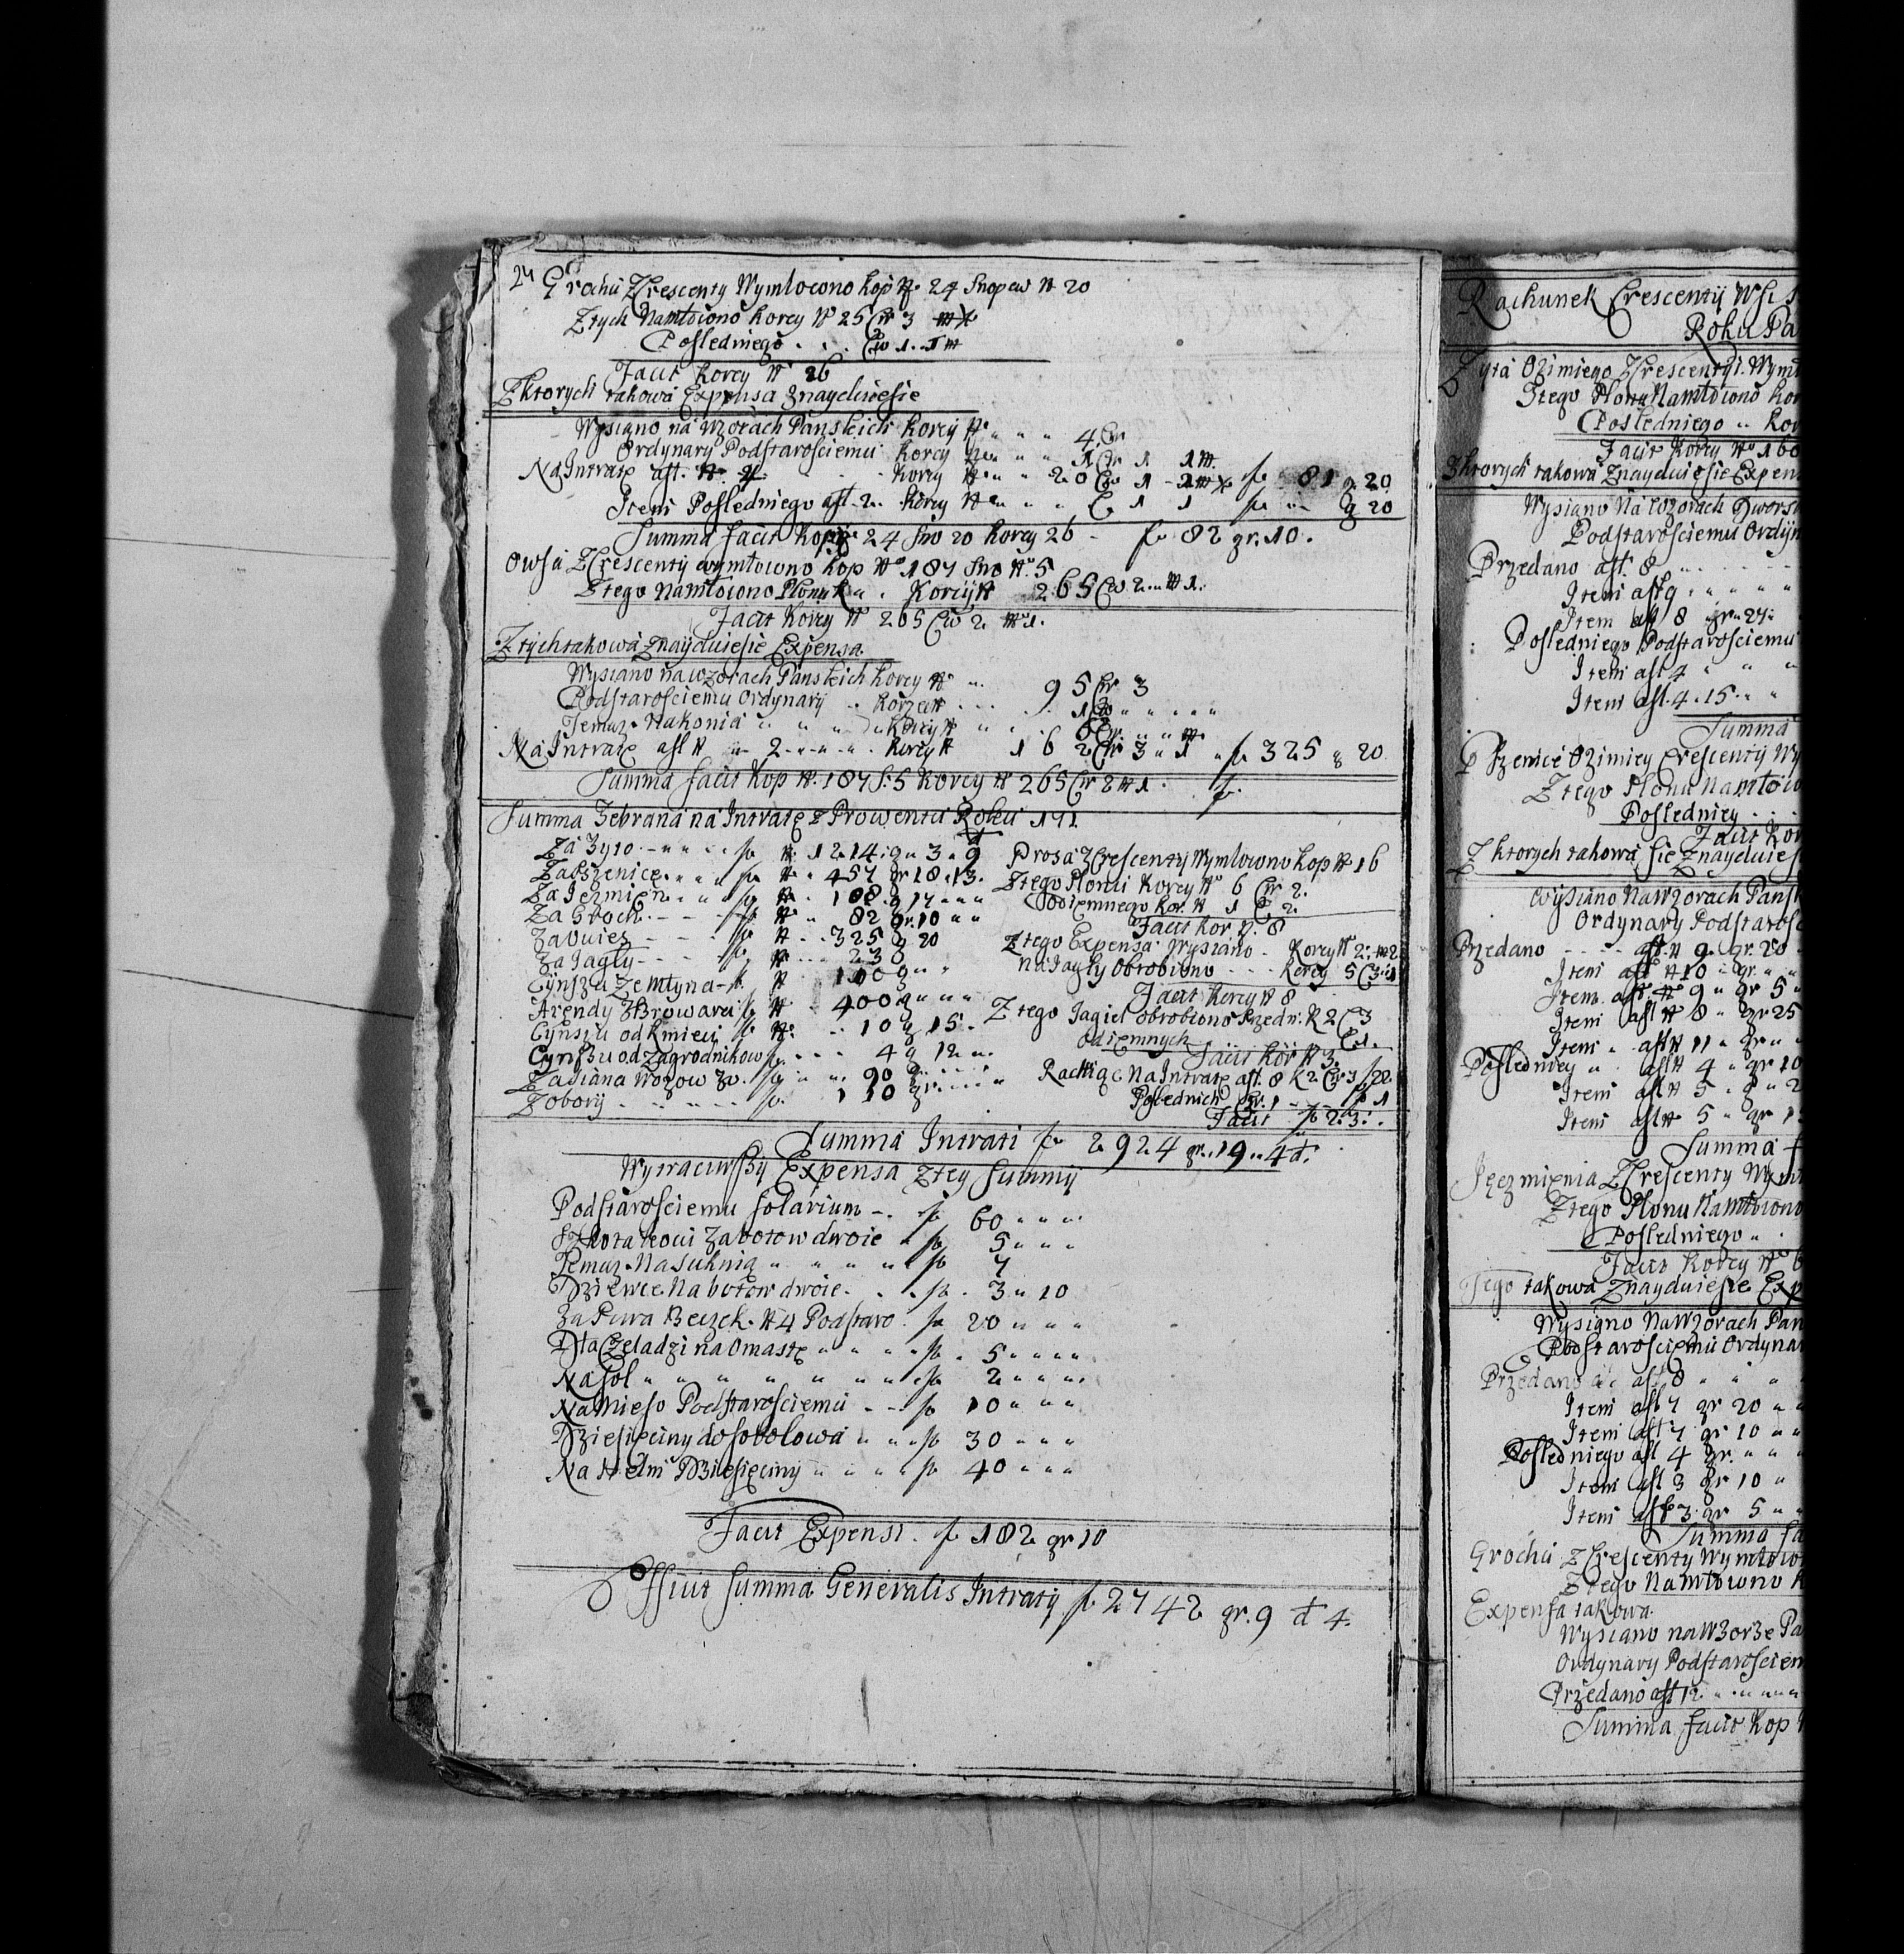 24 Grochu Z Crescenty Wymlocono kop № 24 Snopow № 20
Z tych Namłocono korcy № 25 Cw 3
Posledniego . . . Cw 1 . 1 m
Facit korcy № 26
Z ktorych takowa Expensa Znayduiesie
Wysiano na Wzorach Panskich korcy № 4 Cw
Ordynary Podstarosciemu korcy № 1 Cw 1 1 m.
Na Intratę ast. korcy № 20 Cw 1 fo 81 g 20
Item Posledniego ast. 2. korcy № C 1 1 fo g 20
Summa facit kop 24 Sno 20 korcy 26 - fo 82 gr. 10.
Owsa Z Crescenty wymłocono kop № 187 Sno № 5
Z tego Namłocono Plonu korcy № 265 Cw 2 m 1.
Facit korcy № 265 Cw 2 m 1.
Z tych takowa Znayduiesie Expensa
Wysiano na wzorach Panskich korcy № 95 Cw 3
Podstarosciemu Ordynary korzec № 1
Temuz Nakonia korcy №
Na Intratę ast № 2 korcy № 162 Cw 3 1 fo 325 g 20
Summa facit kop № 187 S. 5 korcy № 265 Cw 2 m 1. f.
Summa Zebrana na Intratę z Prowentu Roku 171
Za Zyto fo № 1214 g 3 9
Za Pszenicę fo № 457 gr 18 13.
Za Jęczmień fo № 188 g 17
Za Groch № 82 gr. 10
Za Owies fo № 325 g 20
Za Jagły fo № 230
Cynszu Ze Młyna fo № 100 g
Arendy Z Browaru fo № 400 g
Cynszu od kmieci fo № 10 g 15.
Cynszu od Zagrodnikow fo 4 g 12
Za Siana Wozow fo 90 g
Z obory fo 110 gr
Prosa Z Crescenty Wymlocono kop № 16
Z tego Plonu korcy № 6 Cw 2.
Odiemnego kor. № 1 C 2.
Facit kor № 8
Z tego Expensa Wysiano korcy № 2 m 2
Na Jagły Obrobiono korcy 5 C 3
Facit korcy № 8
Z tego Jagieł obrobiono Przedn. K 2 C 3
Odiemnych C 1.
Facit kor № 3.
Na Intratę ast. 8 K 2 Cw 3 fo 22
Poslednich Cw. 1 fo 1
Facit fo 23.
Summa Intrati fo 2924 gr. 19 4 d.
Wytraciwszy Expensa Z tey Summy
Podstarosciemu solarium fo 60
Skotakowi Zabotow dwoie fo 5
Temuz Na Suknią fo 7
Dziewce Na botow dwoie fo 3 10
Za Piwa Beczek № 4 Podstaro. fo 20
Dla Czeladzi na Omastę fo 5
Na Sol fo 2
Na Mięso Podstarosciemu fo 10
Dziesięciny do Sobolowa fo 30
Na Dziesięciny fo 40
Facit Expensi. fo 182 gr 10
Summa Generalis Intraty fo 2742 gr. 9 d 4.
Rachunek Crescentÿ Wsi
Roku Pa
Zyta Ozimiego Z Crescentyi Wymł
Z tego Plonu Namłocono kor
Posledniego kor
Facit korcy № 160
Z ktorych takowa Znayduiesie Expen
Wysiano Na Wzorach Dworsk
Podstarosciemu Ordyn
Przedano ast. 8
Item ast 9
Item ast 8 gr 27
Posledniego Podstarosciemu
Item ast 4
Item ast. 4. 15
Summa
Pszenice Ozimiey Crescenty Wy
Z tego Plonu Namłoco
Posledniey
Facit kor
Z ktorych takowa sie Znayduies
Wysiano Na Wzorach Pansk
Ordynary Podstarosc
Przedano ast. № 9. gr. 20
Item ast № 10 gr.
Item ast. № 9 gr 5
Item ast № 8 gr 25
Item ast № 11 gr
Posledniey ast № 4 gr 10
Item ast № 5 g 2
Item ast № 5 gr 1
Summa f
Jęczmienia Z Crescenty Wymł
Z tego Plonu Namłocono
Posledniego
Facit korcy № 6
Z tego takowa Znayduiesie Exp
Wysiano Na Wzorach Pan
Podstarosciemu Ordyna
Przedano ast 8
Item ast 7 gr 20
Item ast 7 gr 10
Posledniego ast 4 gr.
Item ast 3 gr 10
Item ast 3 gr 5
Summa fa
Grochu Z Crescenty Wymłoco
Z tego Namłocono k
Expensa takowa
Wysiano na Wzorze Pa
Ordynary Podstarosciem
Przedano ast 12
Summa facit kop